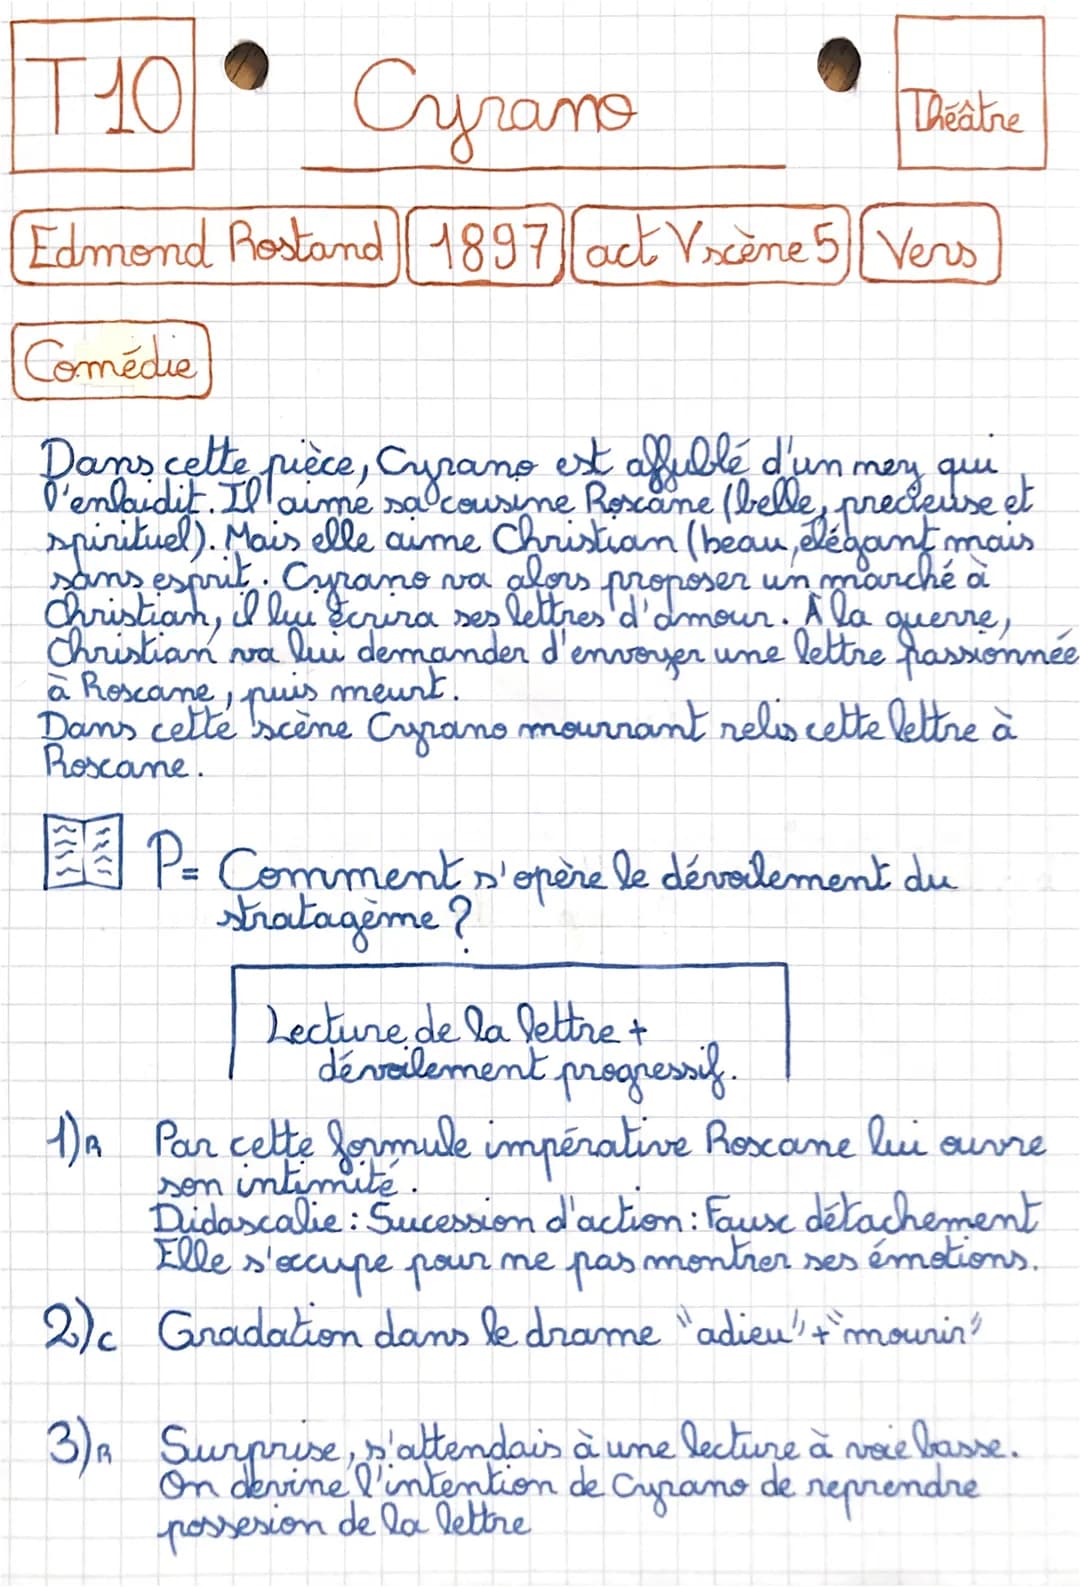 T10 Cyrano Théâtre
Edmond Rostand 1897 act V scène 5 Vers
Comédie
Dans cette pièce, Cyrano est affublé d'un nez qui
l'enlaidit. Il aime sa cousine Roxane (belle, precieuse et
spirituel). Mais elle aime Christian (beau, élégant mais
sans esprit. Cyrano va alors proposer un marché à
Christian, il lui écrira ses lettres d'amour. À la guerre,
Christian va lui demander d'envoyer une lettre passionnée
à Roxane, puis meurt.
Dans cette scène Cyrano mourrant relis cette lettre à
Roxane.
P= Comment s'opère le dévoilement du
stratagème ?
Lecture de la lettre +
dévoilement progressif.
1)R Par cette formule impérative Roxane lui ouvre
son intimité.
Didascalie : Sucession d'action : Faux détachement
Elle s'occupe pour ne pas montrer ses émotions.
2)C Gradation dans le drame "adieu" + "mourir"
3)R Surprise, s'attendais à une lecture à voie basse.
On devine l'intention de Cyrano de reprendre
possesion de la lettre